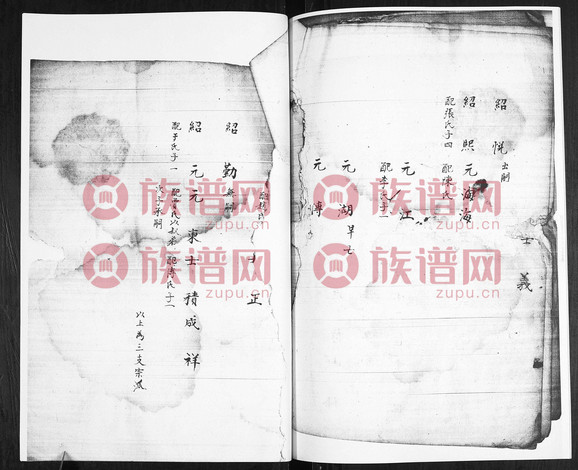 紹悦出嗣
士義
紹熙元海海
配張氏子四
元江
配李氏子二
元湖早亡
元溥
士正
紹勤無嗣
紹元元東士積成祥
配于氏子一
次子承嗣
以上為三支宗派
族谱网
zupu.cn
族谱网
zupu.cn
族谱网
zupu.cn
族谱网
zupu.cn